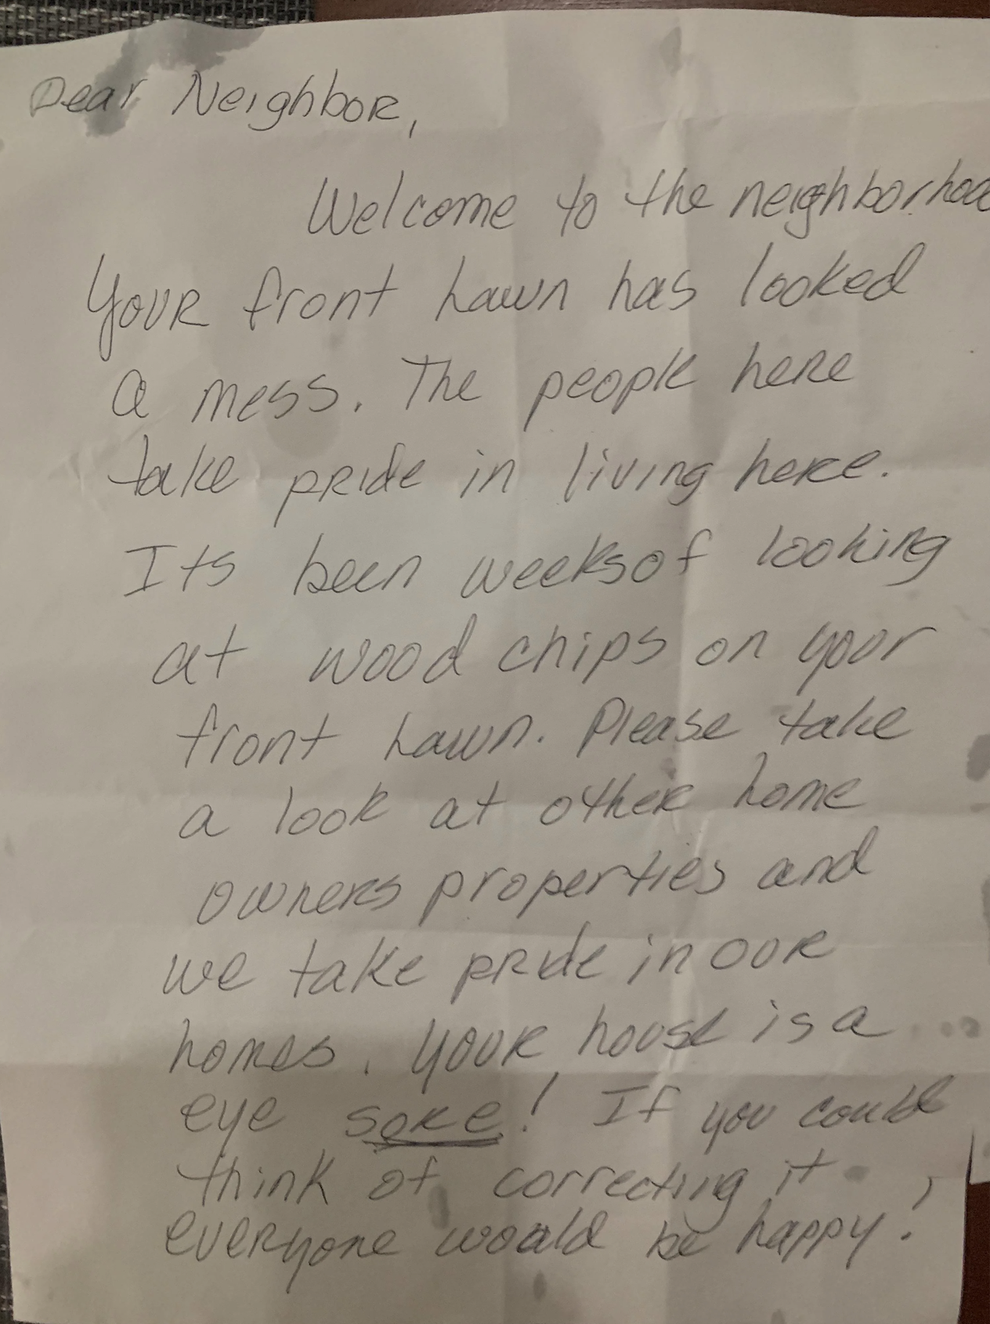 Dear Neighbor,
Welcome to the neighborhoo
Your front Lawn has looked
a mess. The people here
take pride in living here.
Its been weeks of looking
at wood chips on your
front Lawn. Please take
a look at other home
owners properties and
we take pride in our
homes. Your house is a
eye sore! If you could
think of correcting it
everyone would be happy!